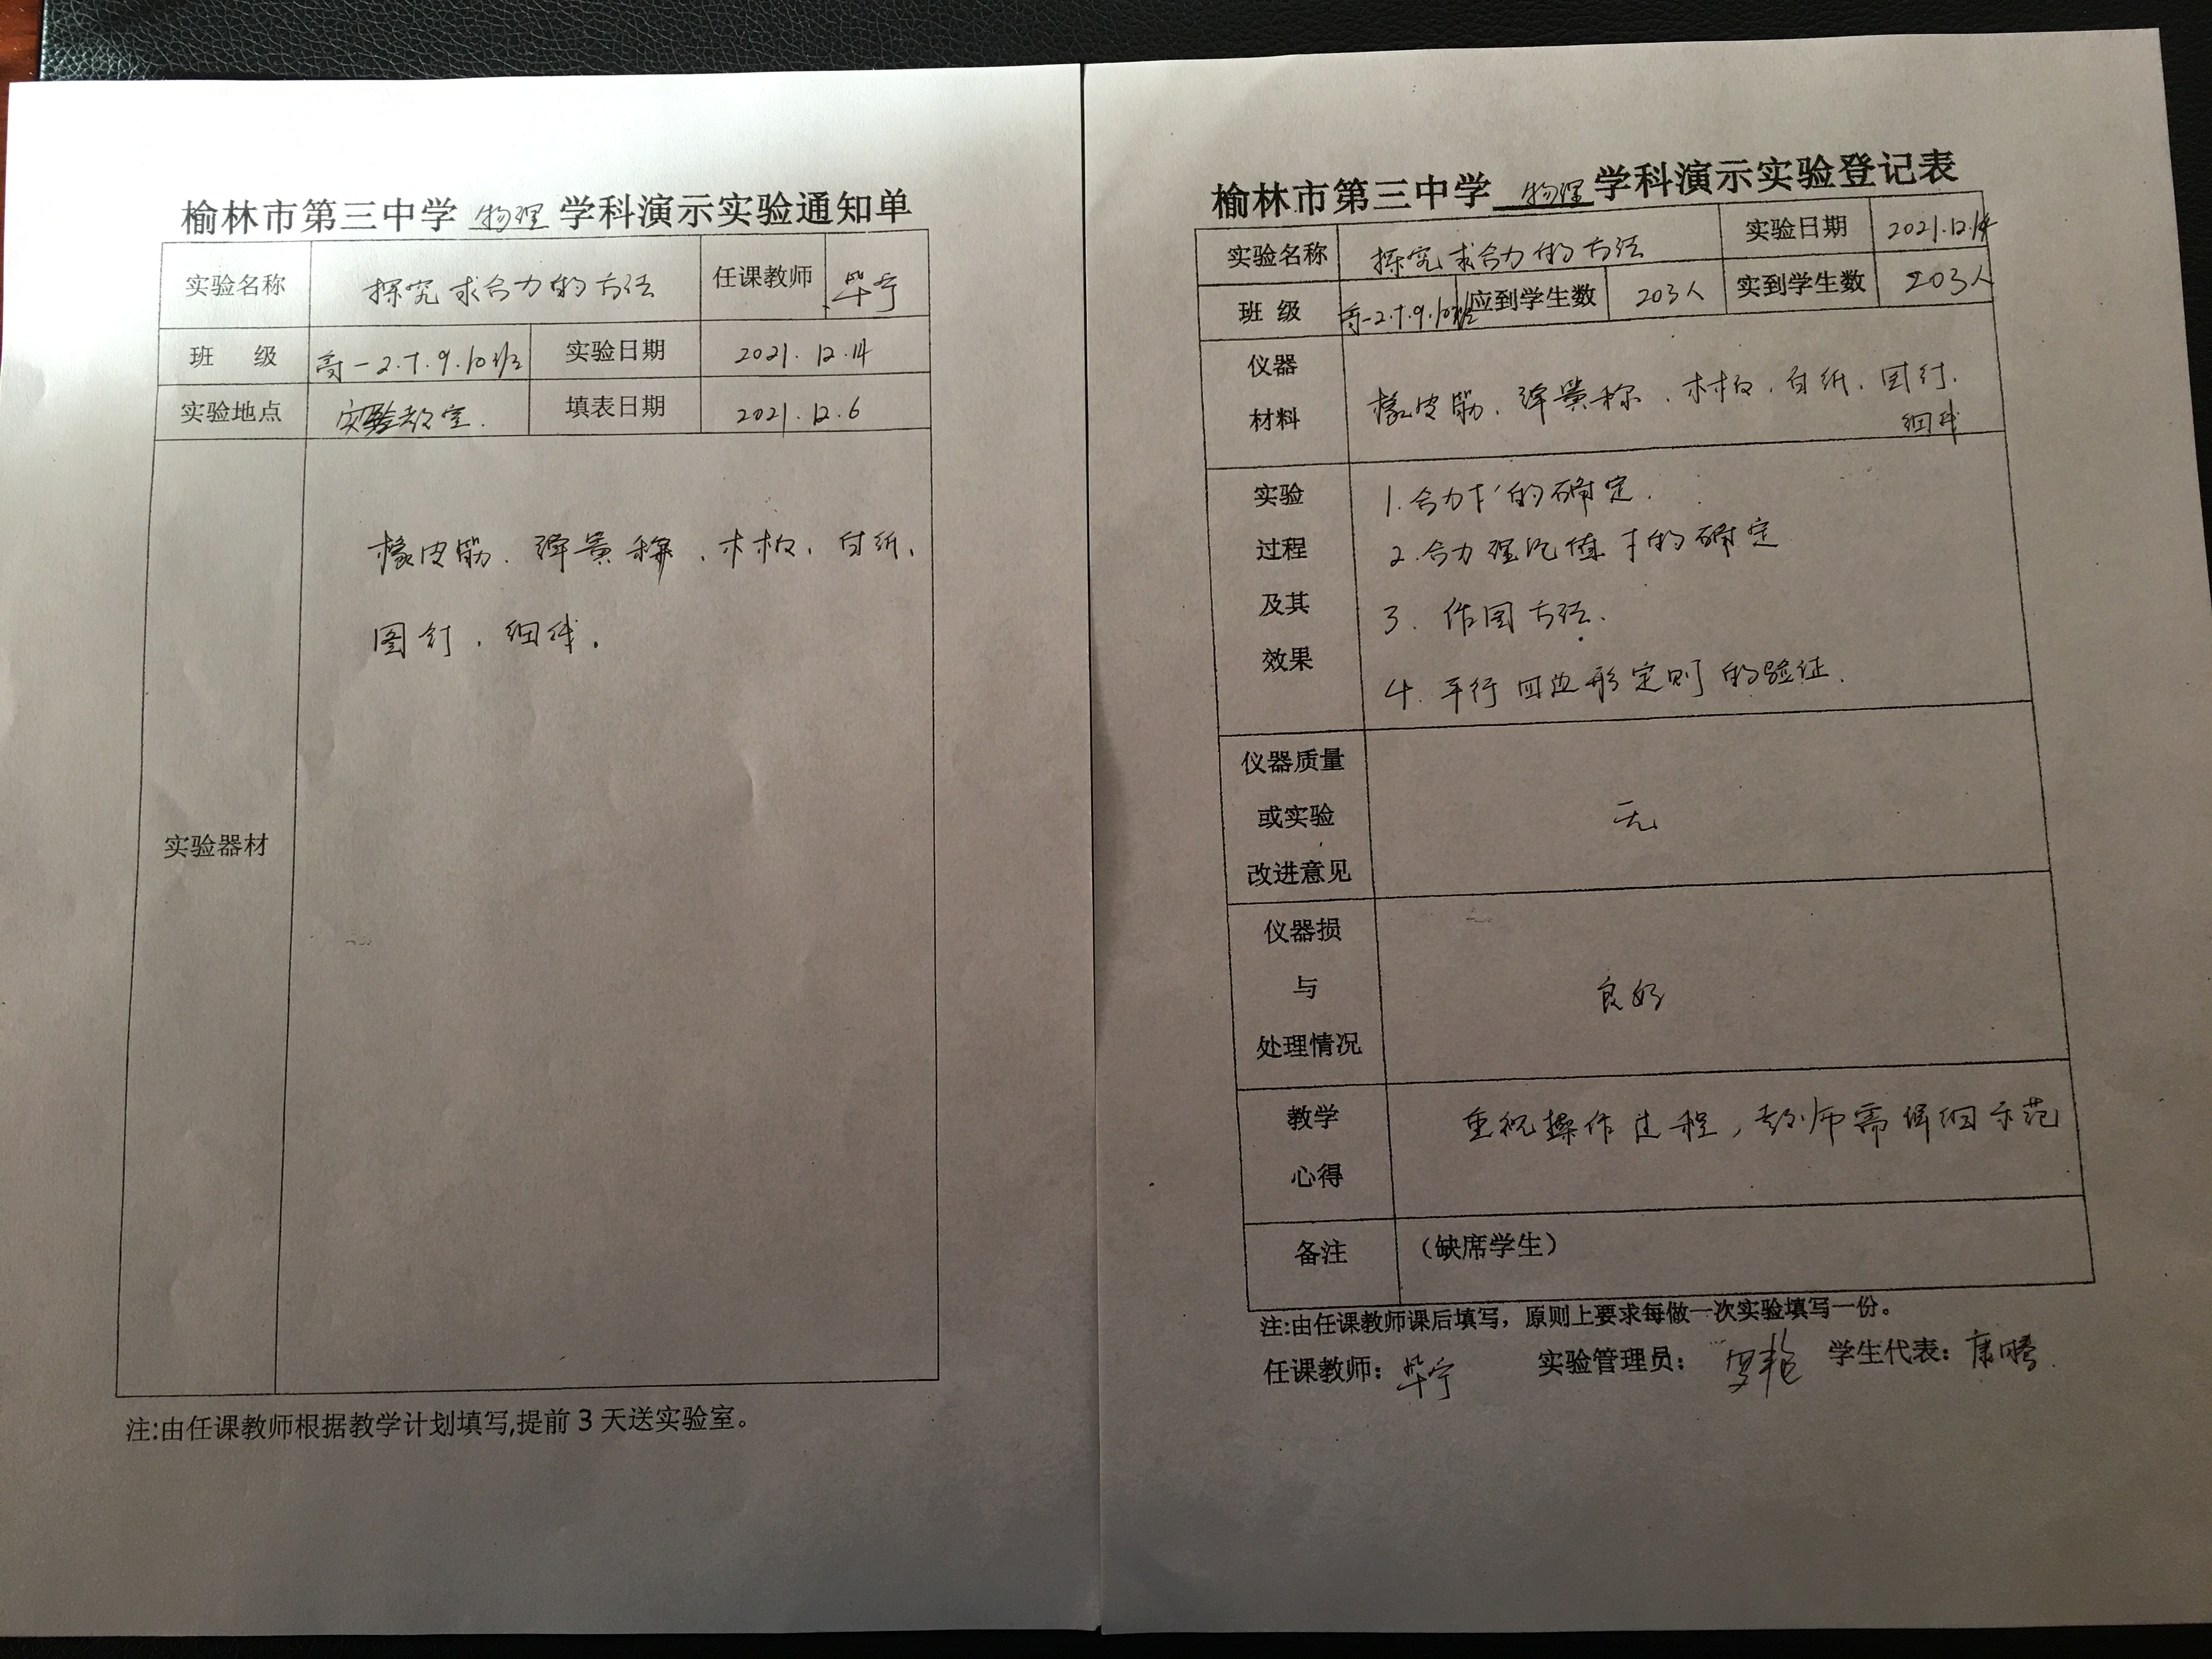 榆林市第三中学 物理 学科演示实验通知单
实验名称 探究求合力的方法 任课教师 毕宁
班 级 高一2.7.9.10班 实验日期 2021.12.14
实验地点 实验教室. 填表日期 2021.12.6
实验器材
橡皮筋、弹黄称、木板、白纸、
图钉、细线.
注:由任课教师根据教学计划填写,提前3天送实验室。
榆林市第三中学 物理 学科演示实验登记表
实验名称 探究求合力的方法 实验日期 2021.12.14
班 级 高一2.7.9.10班 应到学生数 203人 实到学生数 203人
仪器
材料
橡皮筋、弹黄称、木板、白纸、图钉、
细线
实验
过程
及其
效果
1.合力F'的确定.
2.合力理论值F的确定
3. 作图方法.
4. 平行四边形定则的验证.
仪器质量
或实验
改进意见
无
仪器损
与
处理情况
良好
教学
心得
重视操作过程,教师需详细示范
备注 （缺席学生）
注:由任课教师课后填写，原则上要求每做一次实验填写一份。
任课教师：毕宁 实验管理员： 学生代表：康腾